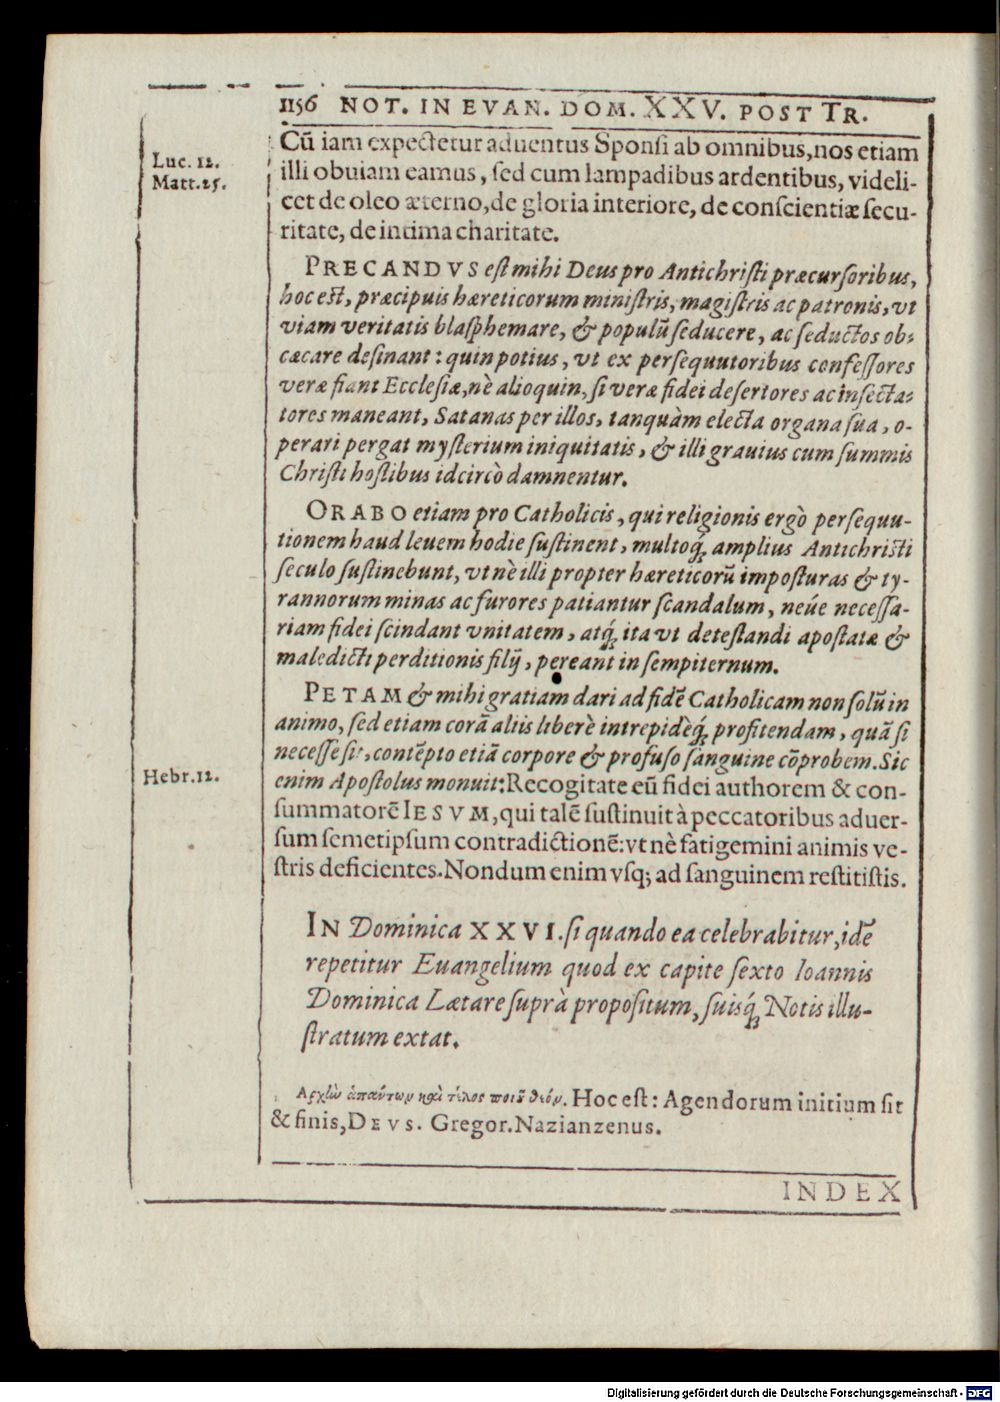 1156 NOT. IN EVAN. DOM. XXV. POST TR.
Luc. 12.
Matt. 25.
Cũ iam expectetur aduentus Sponsi ab omnibus, nos etiam
illi obuiam eamus, sed cum lampadibus ardentibus, videli-
cet de oleo æterno, de gloria interiore, de conscientiæ secu-
ritate, de intima charitate.
PRECANDVS est mihi Deus pro Antichristi præcursoribus,
hoc est, præcipuis hæreticorum ministris, magistris ac patronis, vt
viam veritatis blasphemare, & populũ seducere, ac seductos ob-
cæcare desinant: quin potius, vt ex persequutoribus confessores
veræ fiant Ecclesiæ, nè alioquin, si veræ fidei desertores ac insecta-
tores maneant, Satanas per illos, tanquàm electa organa sua, o-
perari pergat mysterium iniquitatis, & illi grauius cum summis
Christi hostibus idcircò damnentur.
ORABO etiam pro Catholicis, qui religionis ergò persequu-
tionem haud leuem hodie sustinent, multoq́; amplius Antichristi
seculo sustinebunt, vt nè illi propter hæreticorũ imposturas & ty-
rannorum minas ac furores patiantur scandalum, neúe necessa-
riam fidei scindant vnitatem, atq́; ita vt detestandi apostatæ &
maledicti perditionis filij, pereant in sempiternum.
PETAM & mihi gratiam dari ad fidẽ Catholicam non solũ in
animo, sed etiam corã aliis liberè intrepidèq́; profitendam, quã si
necesse sit, contẽpto etiã corpore & profuso sanguine cõprobem. Sic
Hebr. 12.
enim Apostolus monuit: Recogitate eũ fidei authorem & con-
summatorẽ IESVM, qui talẽ sustinuit à peccatoribus aduer-
sum semetipsum contradictionẽ: vt nè fatigemini animis ve-
stris deficientes. Nondum enim vsq; ad sanguinem restitistis.
IN Dominica XXVI. si quando ea celebrabitur, idẽ
repetitur Euangelium quod ex capite sexto Ioannis
Dominica Lætare suprà propositum, suisq́; Notis illu-
stratum extat.
Αρχὼ ἁπάντων καὶ τέλος ποιῦ θεόν. Hoc est: Agendorum initium sit
& finis, DEVS. Gregor. Nazianzenus.
INDEX
Digitalisierung gefördert durch die Deutsche Forschungsgemeinschaft - DFG